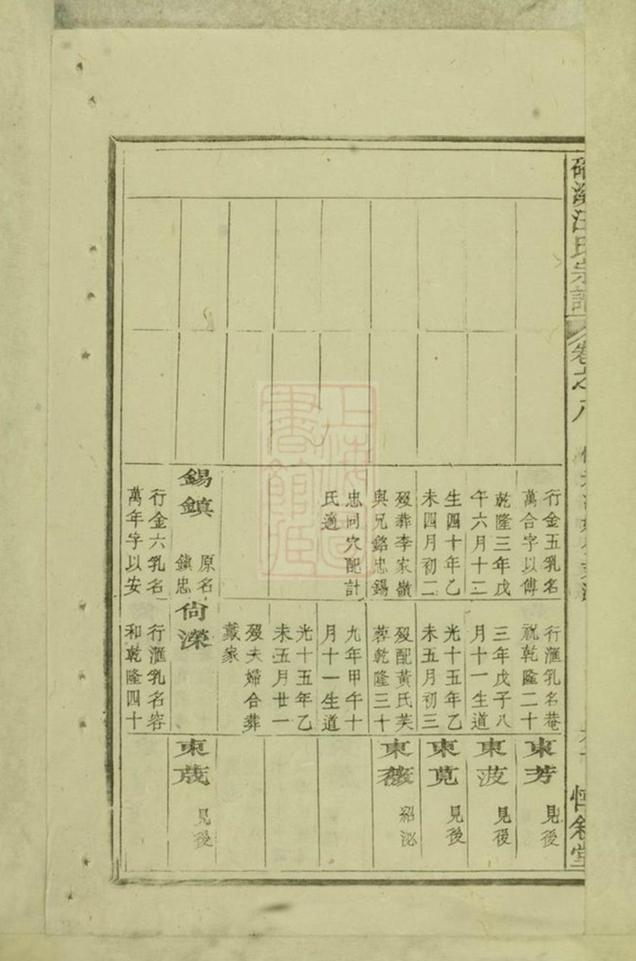 汪氏宗譜
卷之八
惇敘堂
行金五乳名
萬合字以傅
乾隆三年戊
午六月十二
生四十年乙
未四月初二
歿葬李家嶺
與兄銘忠錫
忠同穴配計
氏適
錫鎮
原名
鎮忠
行金六乳名
萬年字以安
行滙乳名菴
祝乾隆二十
三年戊子八
月十一生道
光十五年乙
未五月初三
歿配黃氏芙
蓉乾隆三十
九年甲午十
月十一生道
光十五年乙
未五月廿一
歿夫婦合葬
戴家
尙濚
行滙乳名容
和乾隆四十
東芳 見後
東波 見後
東莧 見後
東薇 紹泌
東荗 見後
上海圖書館藏